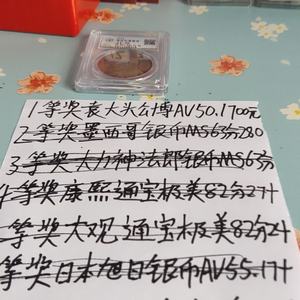 1等奖袁大头公博AV50.1700元
2等奖墨西哥银币MS63分280
3等奖大力神法郎银币MS63分
4等奖康熙通宝极美82分2汁
等奖大观通宝极美82分2汁
等奖日本旭日银币AV55.17汁